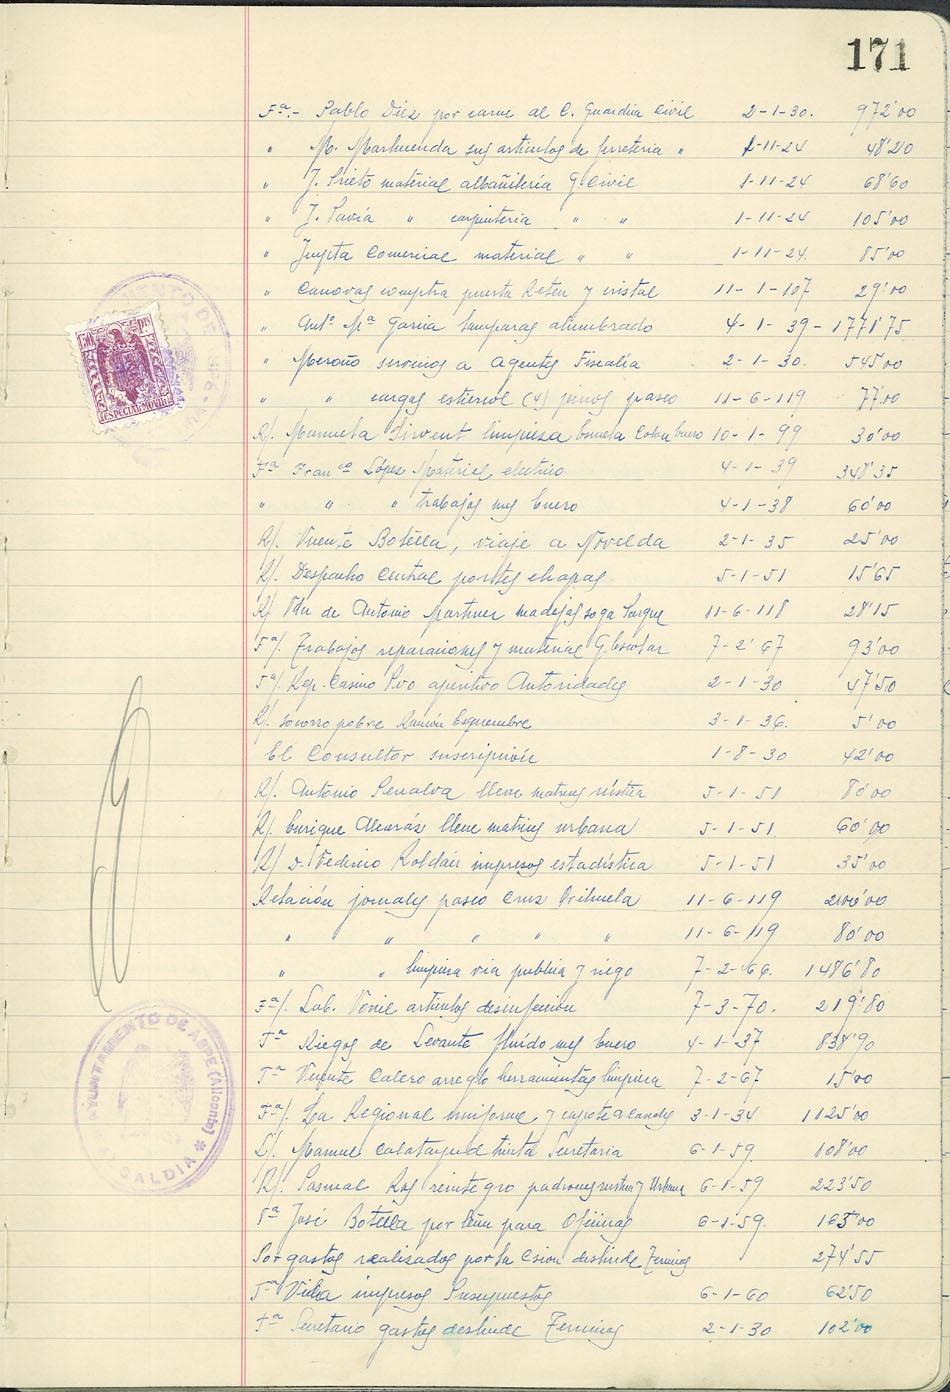 171
Fª.- Pablo Díez por carne al C. Guardia Civil 2-1-30. 972'00
" M. Marhuenda sus articulos de ferreteria " 1-11-24 48'20
" J. Prieto material albañileria G. Civil 1-11-24 68'60
" J. Pavía " carpinteria " " 1-11-24 105'00
" Impta Comercial material " " 1-11-24. 85'00
" Canovas compra puerta Reten y cristal 11-1-107 29'00
" Antº Mª Garcia lamparas alumbrado 4-1-39- 1771'75
" Meroño servicios a Agentes Fiscalía 2-1-30. 545'00
" " cargas estiercol (4) pinos paseo 11-6-119 77'00
R/. Manuela Sirvent limpieza Escuela Colon Enero 10-1-99 30'00
Fª Franco López Material electrico 4-1-39 348'35
" " " trabajos mes Enero 4-1-38 60'00
R/. Vicente Botella, viaje a Novelda 2-1-35 25'00
R/. Despacho Central portes chapas 5-1-51 15'65
R/ Vda de Antonio Martinez madejas soga Parque 11-6-118 28'15
Fª/. Trabajos reparaciones y material G. Escolar 7-2-67 93'00
Fª/. Rep. Casino Pvo aperitivo Autoridades 2-1-30 47'50
R/. socorro pobre Ramón Esquembre 3-1-36. 5'00
El Consultor suscripción 1-8-30 42'00
R/. Antonio Penalva lleve matriz rústica 5-1-51 80'00
R/. Enrique Alcaráz lleve matriz urbana 5-1-51. 60'00
R/ D. Federico Roldán impresos estadística 5-1-51 35'00
Relación jornales paseo Cruz Orihuela 11-6-119 2100'00
" " " " " 11-6-119 80'00
" " limpieza via publica y riego 7-2-66. 1486'80
Fª/. Lab. articulos desinfeccion 7-3-70. 219'80
Fª Riegos de Levante flúido mes Enero 4-1-37 838'90
Fª Vicente Calero arreglo herramientas limpieza 7-2-67 15'00
Fª/. La Regional uniforme y capote 3-1-34 1125'00
R/. Manuel Calatayud tinta Secretaria 6-1-59. 108'00
R/. Pascual Ros reintegro padrones rustica y Urbana 6-1-59 223'50
Fª José Botella por leña para Oficinas 6-1-59. 163'00
Por gastos realizados por la Csion deslinde Terminos 274'55
Fª Vidia impresos Presupuestos 6-1-60 62'50
Fª Secretario gastos deslinde Terminos 2-1-30 102'00
ESPECIAL MOVIL
AYUNTAMIENTO DE ASPE (Alicante)
ALCALDIA